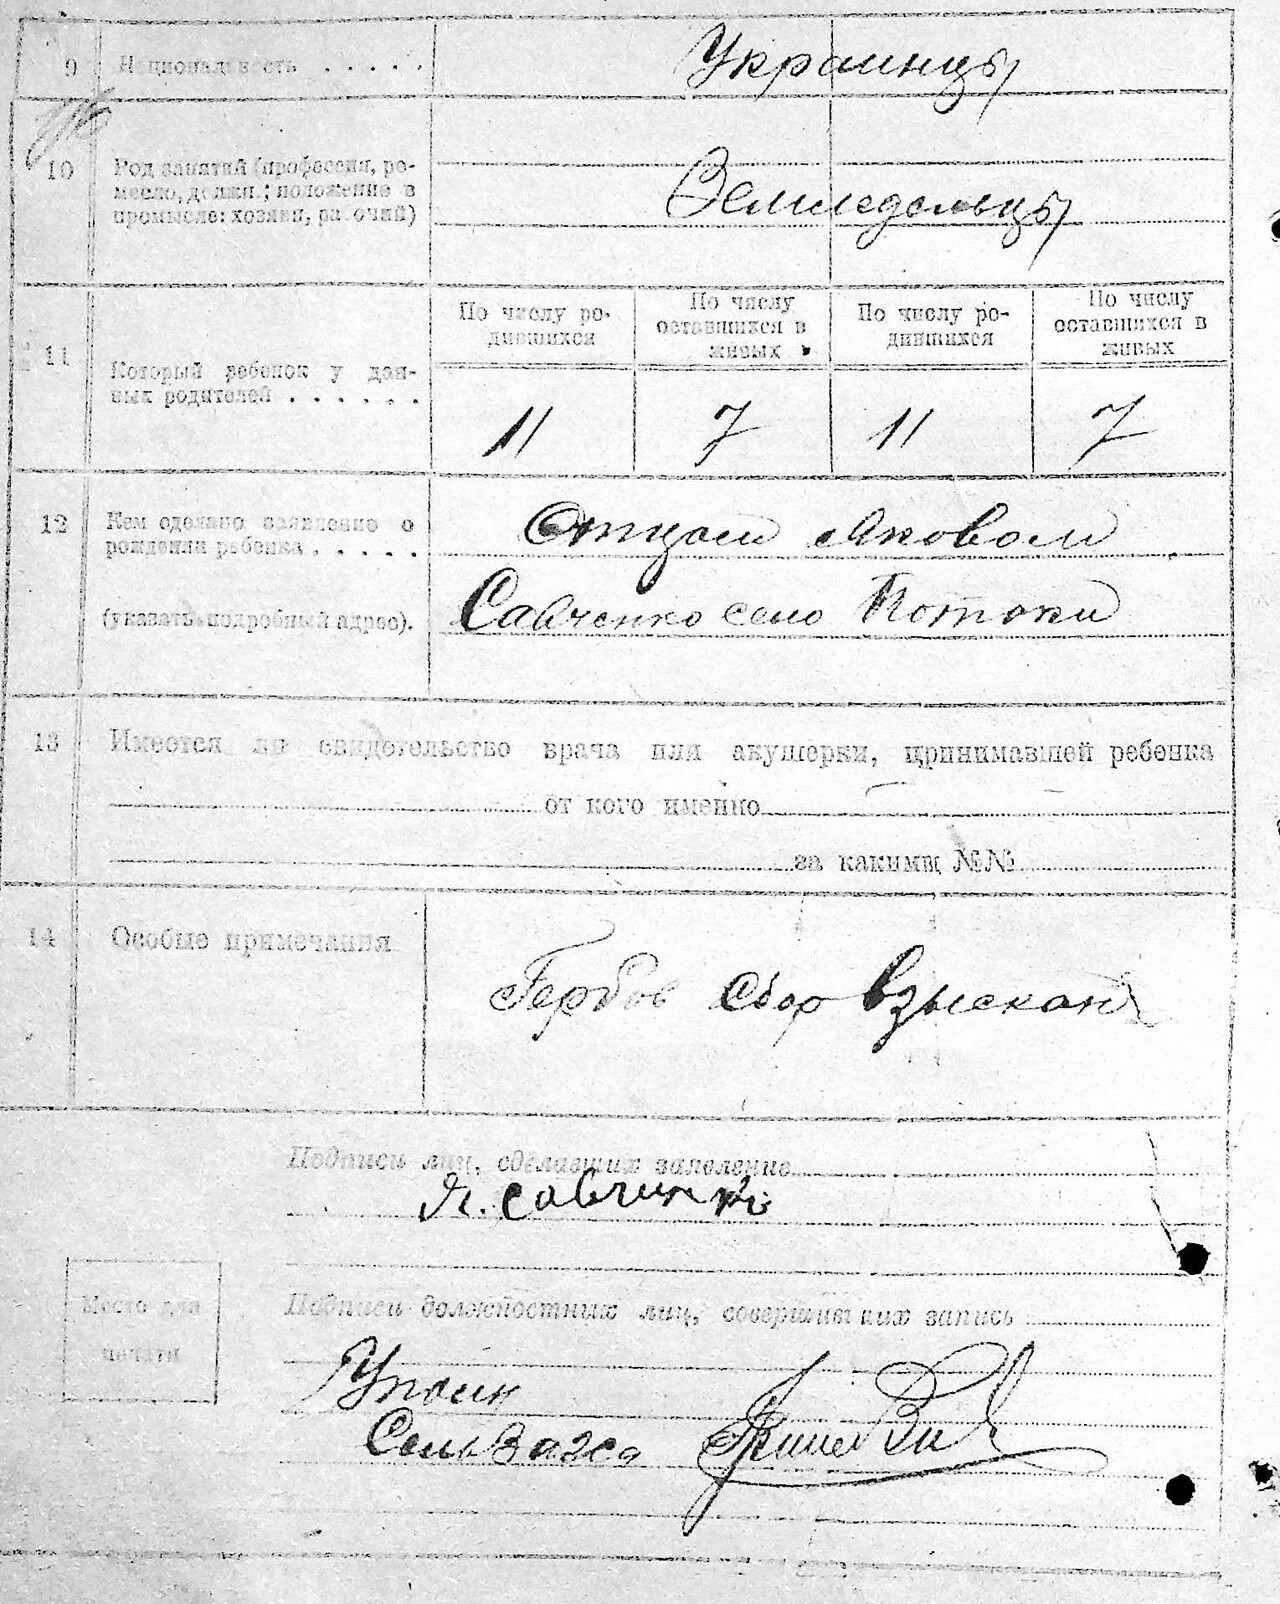 9 Национальность . . . . .
Украинцы
10 Род занятий (профессия, ре-
месло, должн.; положение в
промысле: хозяин, рабочий)
Земледельцы
По числу ро-
дившихся
По числу
оставшихся в
живых
По числу ро-
дившихся
По числу
оставшихся в
живых
11 Который ребенок у дан-
ных родителей . . . . . .
11 7 11 7
12 Кем сделано заявление о
рождении ребенка . . . . .
(указать подробный адрес).
Отцом Яковом
Савченко село Потоки
13 Имеется ли свидетельство врача или акушерки, принимавшей ребенка
от кого именно
за каким №№
14 Особые примечания
Гербов сбор взыскан
Подписи лиц, сделавших заявление
Я. Савченко
Место для
печати
Подписи должностных лиц, совершивших запись
Сель